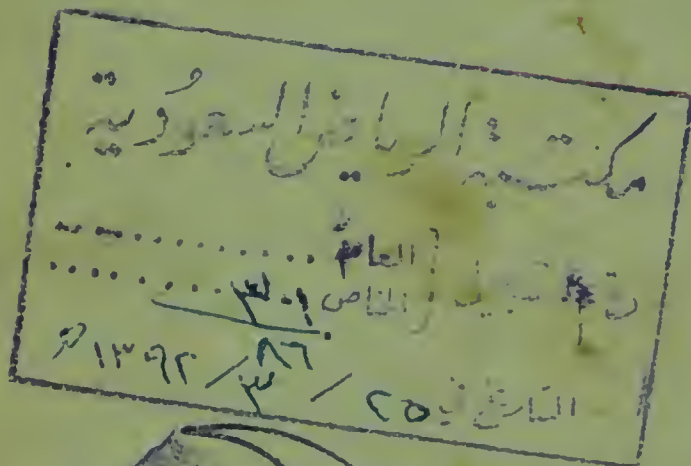 مكتبة الرياض السعودية
رقم التسجيل العام ..............
الخاص ٣٠١/٨٦ ..............
التاريخ ٢٥ / ٣ / ١٣٩٢ هـ